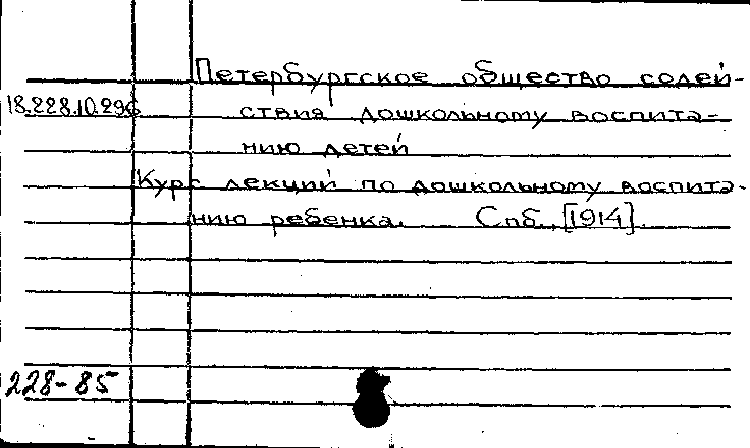 Петербургское общество содей-
18.228.10.296 ствия дошкольному воспита-
нию детей
Курс лекций по дошкольному воспита-
нию ребенка. Спб., [1914].
228-85